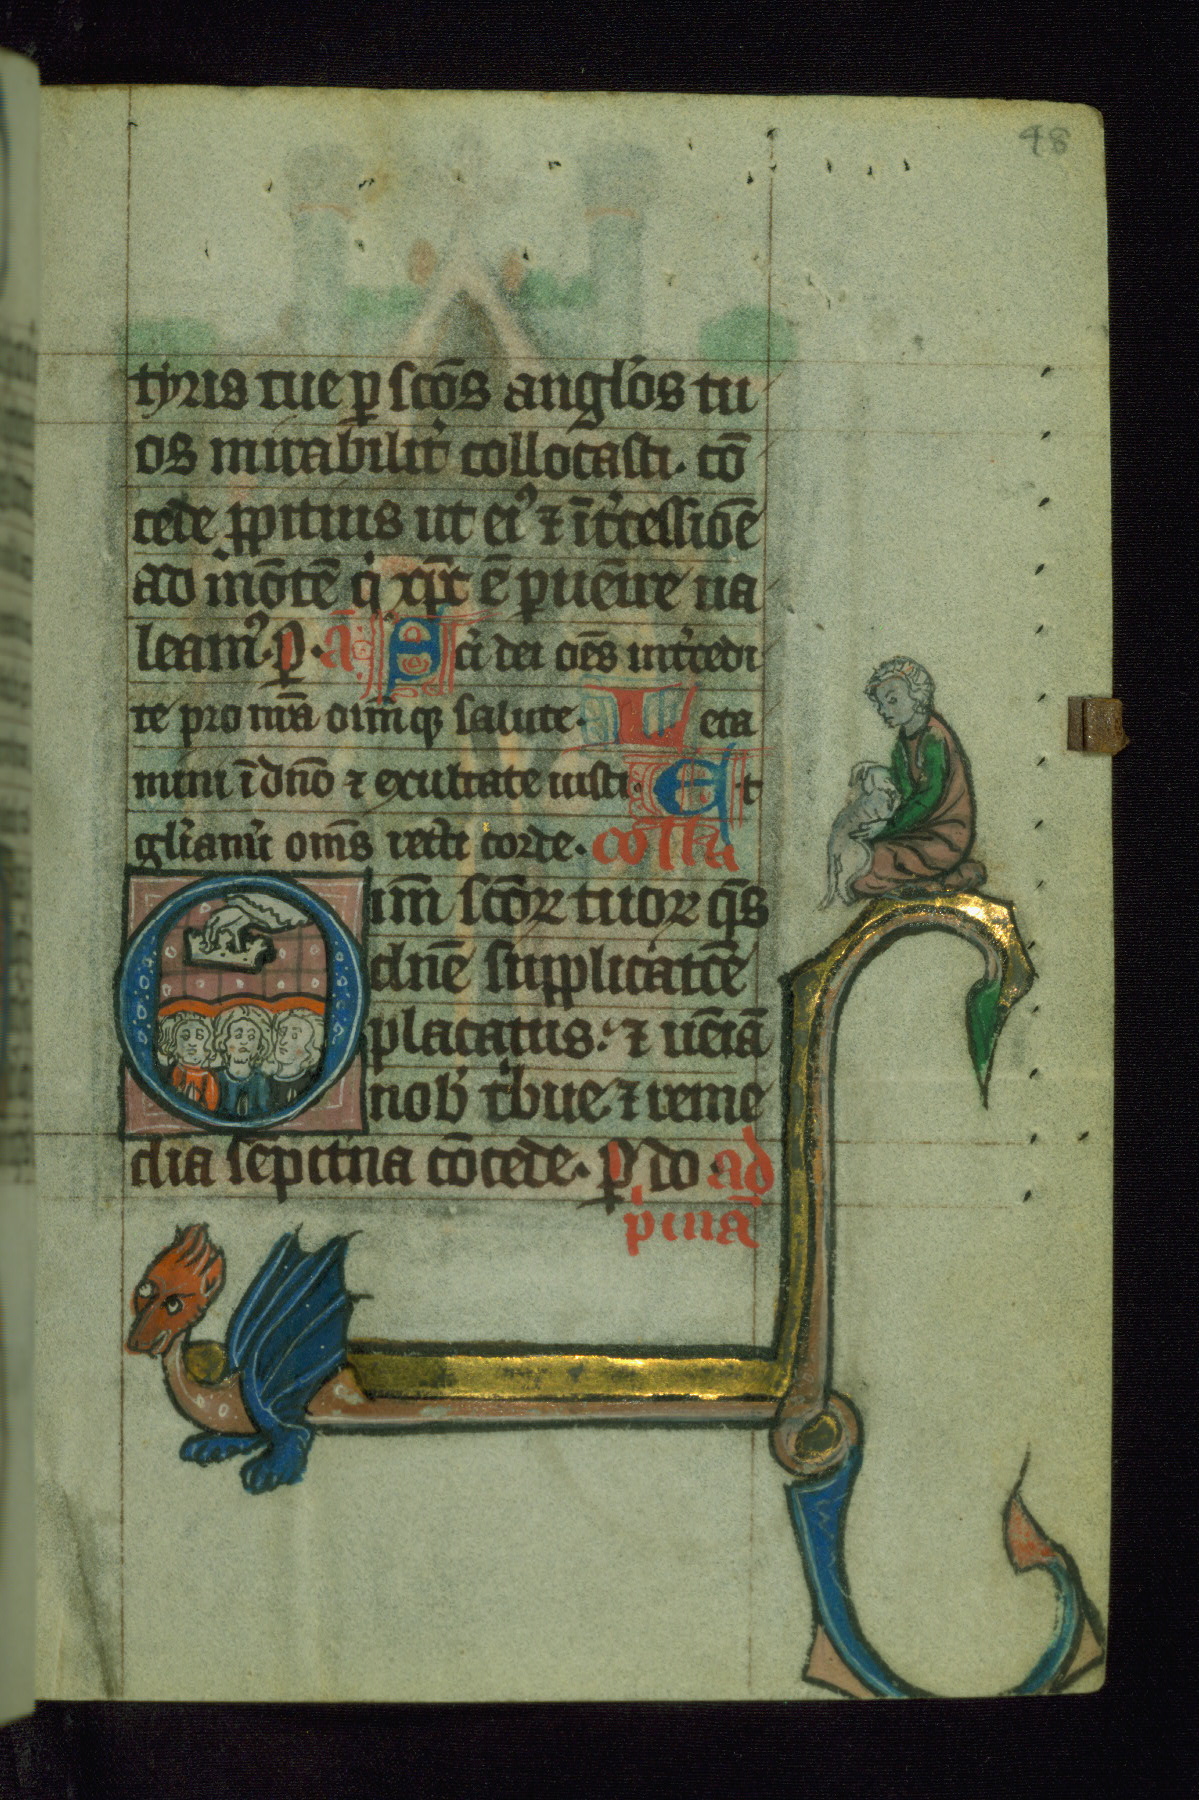 48
tyris tue ꝑ sc̄os angl'os tu
os mirabilit' collocasti. cō
cede ꝓpitius ut ei' ⁊ īt'cessiōe
ad mōtē q' xp̄c ē ꝑuēire ua
leam'. ꝑ. ā S̄ci dei oēs int'cedi
te pro nr̄a oīmq̨ salute. Leta
mini ī dn̄o ⁊ exultate iusti. Et
gl'iamī't om̄s recti corde. coll'a
Oīm sc̄oꝝ tuoꝝ q̄s
dn̄e supplicatōe
placatus. ⁊ ueīā
nob' t'bue ⁊ reme
dia sepit'na cōcede. ꝑ do ad
p'mā